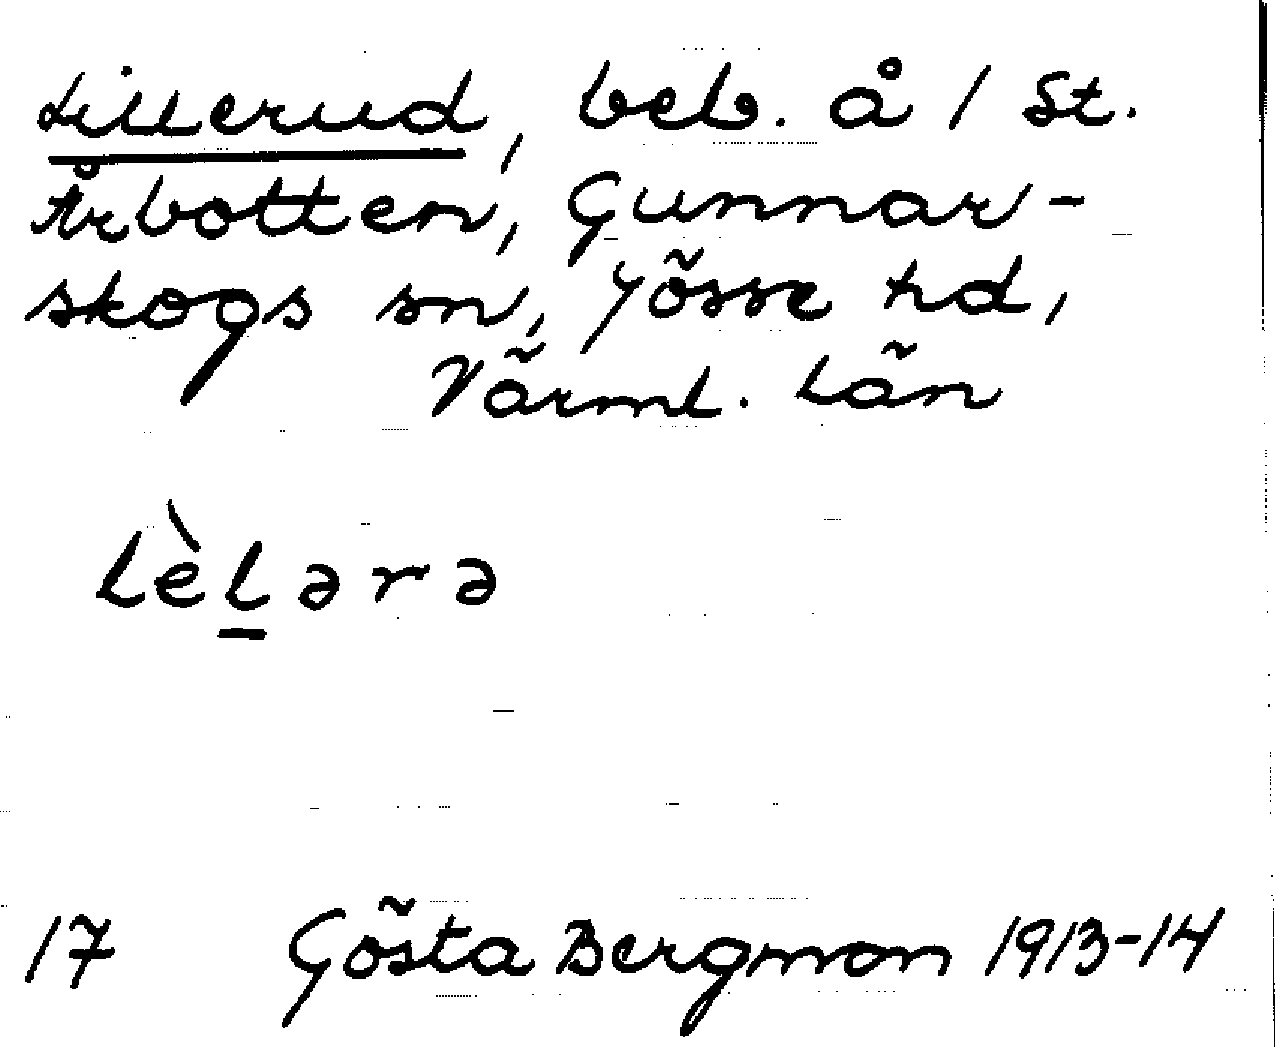 Lillerud, beb. å 1 St.
Årbotten, Gunnar-
skogs sn, Jösse hd,
Värml. län
lèlərə
17 Gösta Bergman 1913-14